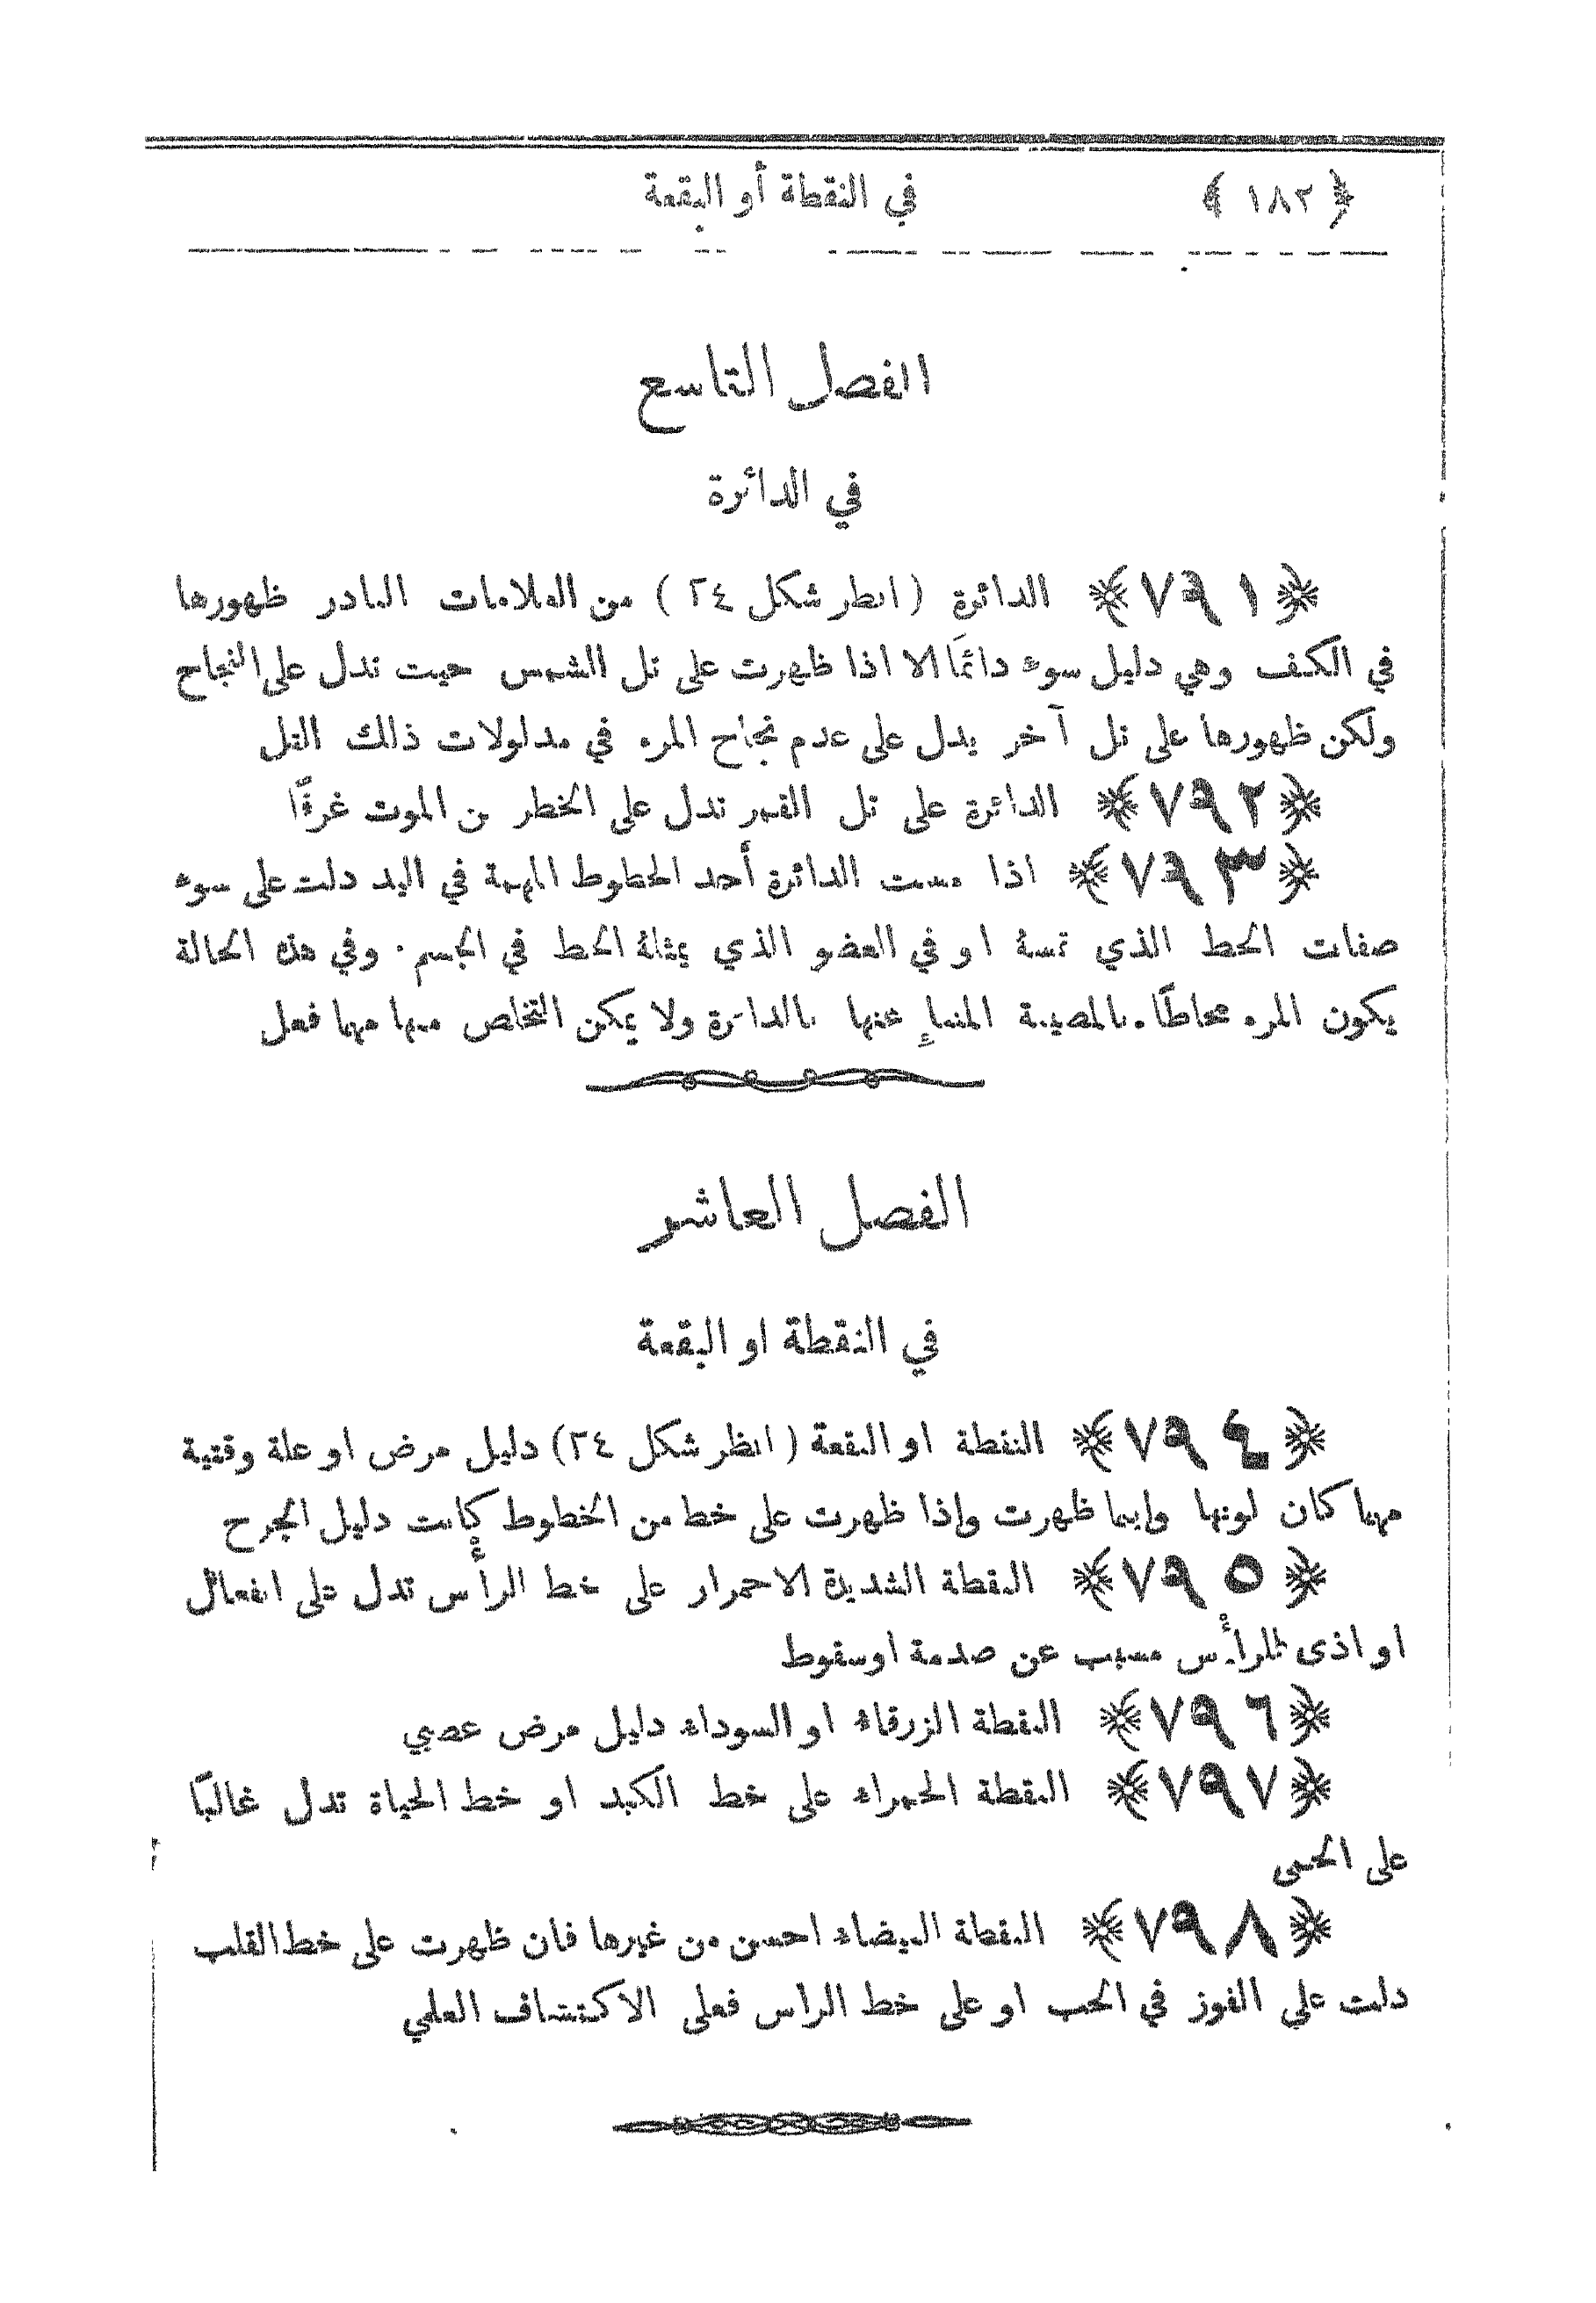 ﴿ ١٨٢ ﴾ في النقطة أو البقعة
الفصل التاسع
في الدائرة
﴿٧٩١﴾ الدائرة ( انظر شكل ٢٤ ) من العلامات النادر ظهورها
في الكف وهي دليل سوء دائمًا الا اذا ظهرت على تل الشمس حيث تدل على النجاح
ولكن ظهورها على تل آخر يدل على عدم نجاح المرء في مدلولات ذلك التل
﴿٧٩٢﴾ الدائرة على تل القمر تدل على الخطر من الموت غرقًا
﴿٧٩٣﴾ اذا مست الدائرة أحد الخطوط المهمة في اليد دلت على سوء
صفات الخط الذي تمسهُ او في العضو الذي يمثلهُ الخط في الجسم . وفي هذه الحالة
يكون المرء محاطًا بالمصيبة المنبإِ عنها بالدائرة ولا يمكن التخلص منها مهما فعل
الفصل العاشر
في النقطة او البقعة
﴿٧٩٤﴾ النقطة او البقعة ( انظر شكل ٢٤) دليل مرض او علة وقتية
مهما كان لونها واينما ظهرت واذا ظهرت على خط من الخطوط كانت دليل الجرح
﴿٧٩٥﴾ النقطة الشديدة الاحمرار على خط الرأْس تدل على انفعال
او اذى للرأْس مسبب عن صدمة اوسقوط
﴿٧٩٦﴾ النقطة الزرقاء او السوداء دليل مرض عصبي
﴿٧٩٧﴾ النقطة الحمراء على خط الكبد او خط الحياة تدل غالبًا
على الحمى
﴿٧٩٨﴾ النقطة البيضاء احسن من غيرها فان ظهرت على خط القلب
دلت علي الفوز في الحب او على خط الراس فعلى الاكتشاف العلمي